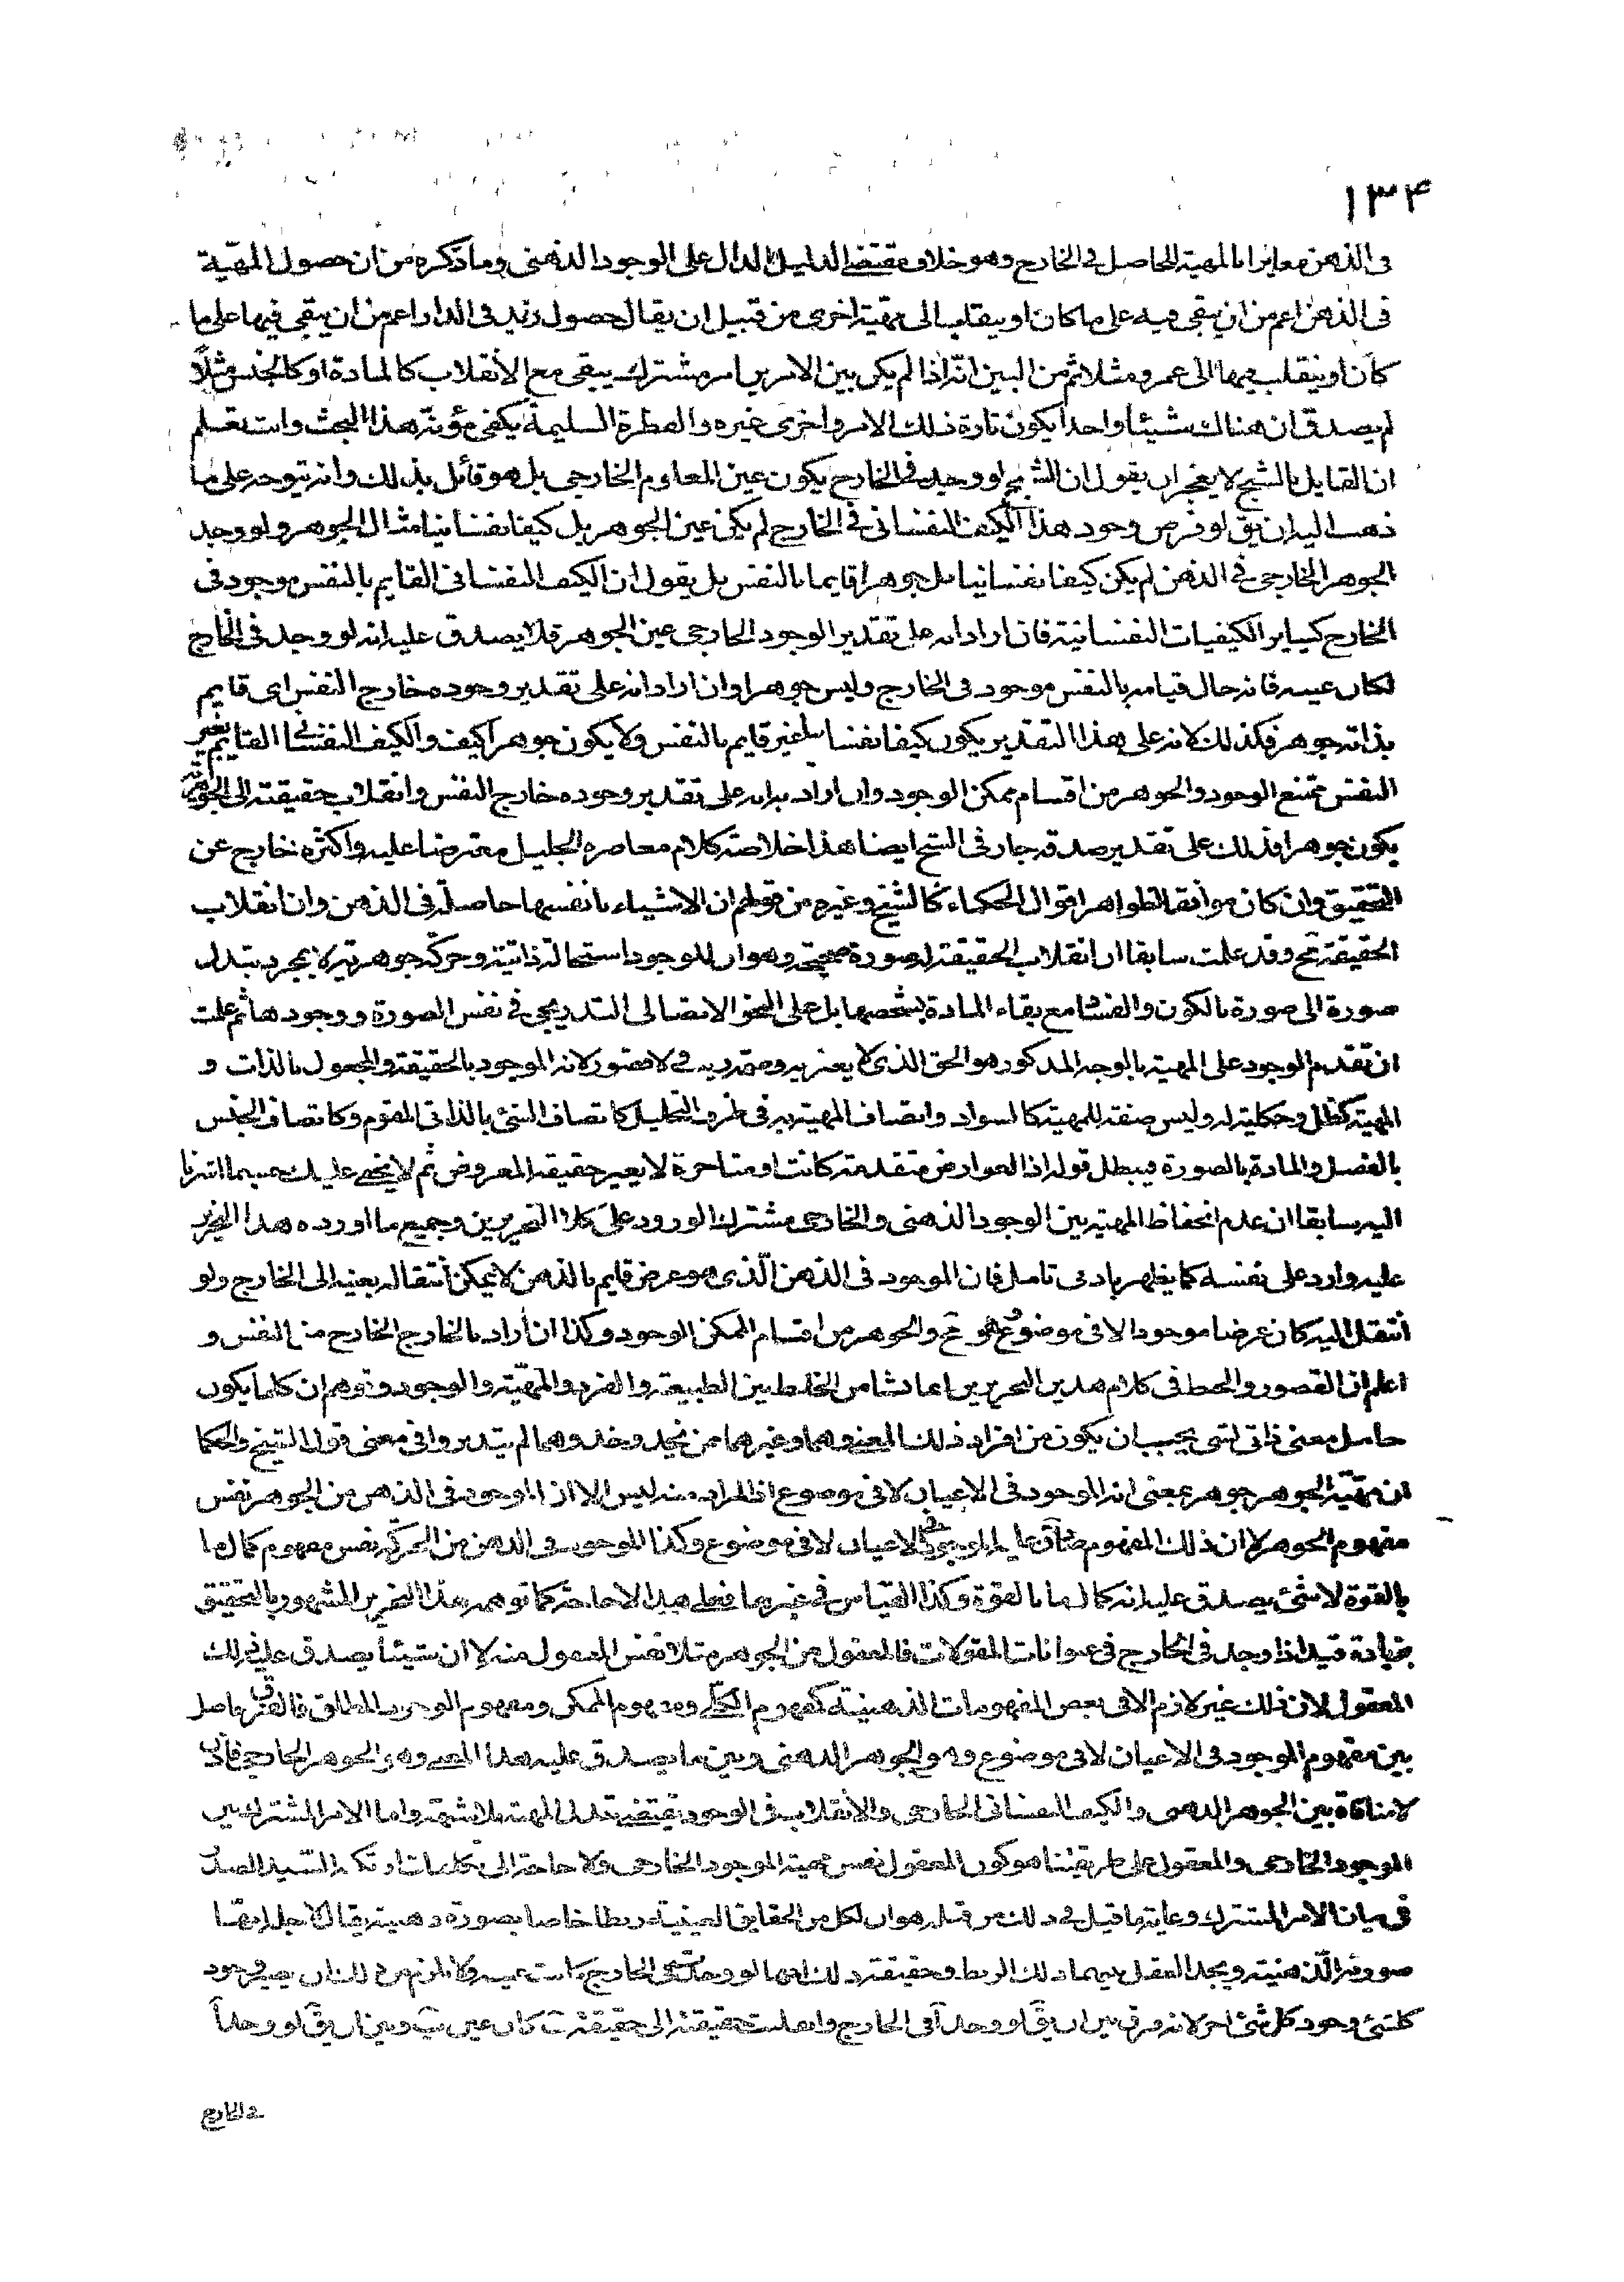 ۱۳۴
فى الذهن مغايرا بالمهية للحاصل فى الخارج وهو خلاف مقتضى الدليل الدال على الوجود الذهنى وما ذكره من ان حصول المهيّة
فى الذهن اعم من ان يبقى فيه على ما كان او ينقلب الى مهية اخرى من قبيل ان يقال حصول زيد فى الدار اعم من ان يبقى فيها على ما
كان او ينقلب فيها الى عمرو مثلا ثم من البين انّه اذا لم يكن بين الامرين امر مشترك يبقى مع الانقلاب كالمادة او كالجنس مثلاً
لم يصدق ان هناك شيئا واحدا يكون تارة ذلك الامر واخرى غيره والفطرة السليمة يكفى مؤنة هذا البحث وانت تعلم
ان القايل بالشبح لا يعجز ان يقول ان الشبح لو وجد فى الخارج يكون عين المعلوم الخارجى بل هو قائل بذلك وانه يتوجه على ما
ذهب اليه ان يق لو فرض وجود هذا الكيف النفسانى فى الخارج لم يكن عين الجوهر بل كيفا نفسانيا مثال الجوهر ولو وجد
الجوهر الخارجى فى الذهن لم يكن كيفا نفسانيا بل جوهرا قايما بالنفس بل يقول ان الكيف النفسانى القايم بالنفس موجود فى
الخارج كساير الكيفيات النفسانية فان اراد انه على تقدير الوجود الخارجى عين الجوهر فلا يصدق عليه انه لو وجد فى الخارج
لكان عينه فانه حال قيامه بالنفس موجود فى الخارج وليس جوهرا وان اراد انه على تقدير وجوده خارج النفس اى قايم
بذاته جوهر فكذلك لانه على هذا التقدير يكون كيفا نفسا غير قايم بالنفس ولا يكون جوهرا كيف والكيف النفسانى القايم بغير
النفس ممتنع الوجود والجوهر من اقسام ممكن الوجود وان اراد به انه على تقدير وجوده خارج النفس وانقلاب حقيقته الى الجوهرية
يكون جوهرا فذلك على تقدير صدقه جار فى الشبح ايضا هذا خلاصة كلام معاصره الجليل معترضا عليه واكثره خارج عن
التحقيق وان كان موافقا لظواهر اقوال الحكماء كالشيخ وغيره من قولهم ان الاشياء بانفسها حاصلة فى الذهن وان انقلاب
الحقيقة مح وقد علمت سابقا ان انقلاب الحقيقة له صورة صحيحة وهو ان للوجود استحالة ذاتية وحركة جوهرية لا بمجرد تبدل
صورة الى صورة بالكون والفساد مع بقاء المادة بشخصها بل على النحو الاتصالى التدريجى فى نفس الصورة ووجودها ثم علمت
ان تقدم الوجود على المهية بالوجه المذكور هو الحق الذى لا يعتريه وصمة ريب ولا قصور لانه الموجود بالحقيقة والمجعول بالذات و
المهية كظل وحكاية له وليس صفة للمهية كالسواد واتصاف المهية به فى ظرف التحليل كاتصاف الشئ بالذاتى المقوم وكاتصاف الجنس
بالفصل والمادة بالصورة فيبطل قوله اذا العوارض متقدمة كانت او متاخرة لا يغير حقيقة المعروض ثم لا يخفى عليك حسبما اشرنا
اليه سابقا ان عدم انحفاظ المهية بين الوجود الذهنى والخارجى مشترك الورود على كلا التحريرين وجميع ما اورده هذا النحرير
عليه وارد على نفسه كما يظهر بادنى تامل فان الموجود فى الذهن الّذى هو عرض قايم بالذهن لا يمكن انتقاله بعينه الى الخارج ولو
انتقل اليه كان عرضا موجودا لا فى موضوع وهو مح والجوهر من اقسام الممكن الوجود وكذا ان اراد بالخارج الخارج من النفس و
اعلم ان القصور والخبط فى كلام هذين النحريرين انما نشا من الخلط بين الطبيعة والفرد والمهيّة والوجود وتوهم ان كلما يكون
حاصل معنى ذاتى لشى يجب ان يكون من افراد ذلك المعنى وهما وغيرهما ممن يحذو حذوهما لم يتدبروا فى معنى قول الشيخ والحكما
ان مهيّة الجوهر جوهر بمعنى انه الموجود فى الاعيان لا فى موضوع اذ المراد منه ليس الا ان الموجود فى الذهن من الجوهر نفس
مفهوم الجوهر لا ان ذلك المفهوم صادق عليه الموجود فى الاعيان لا فى موضوع وكذا الموجود فى الذهن من الحركة نفس مفهوم كمال ما
بالقوة لا شئ يصدق عليه انه كمال لما بالقوة وكذا القياس فى غيرهما فعلى هذا لا حاجة كما توهمه هذا النحرير المشهور بالتحقيق
بزيادة قيد اذا وجد فى الخارج فى عنوانات المقولات فالمعقول من الجوهر مثلا نفس المعقول منه لا ان شيئا يصدق عليه ذلك
المعقول لان ذلك غير لازم الا فى بعض المفهومات الذهنية كمفهوم الكلى ومفهوم الممكن ومفهوم الوجود المطلق فالفرق حاصل
بين مفهوم الموجود فى الاعيان لا فى موضوع وهو الجوهر الذهنى وبين ما يصدق عليه هذا المعنى وهو الجوهر الخارجى فاذن
لا منافاة بين الجوهر الذهنى والكيف النفسانى الخارجى والانقلاب فى الوجود يقتضى تبدل المهية بلا شبهة واما الامر المشترك بين
الموجود الخارجى والمعقول على طريقتنا هو كون المعقول نفس مهية الموجود الخارجى فلا حاجة الى تكلفات ارتكبه السيد الصدر
فى بيان الامر المشترك وغاية ما قيل فى ذلك من قبله هو ان لكل من الحقايق العينية ربطا خاصا بصورة ذهنية يقال لاجله انها
صورته الذهنية ويجد العقل بينهما ذلك الربط وحقيقة ذلك انها لو وجدت فى الخارج كانت عينه ولا يلزم من ذلك ان يصير وجود
كل شئ وجود كل شئ اخر لانه فرق بين ان يق لو وجد آ فى الخارج وانقلبت حقيقته الى حقيقة ب كان عين ب وبين ان يق لو وجد آ
فى الخارج